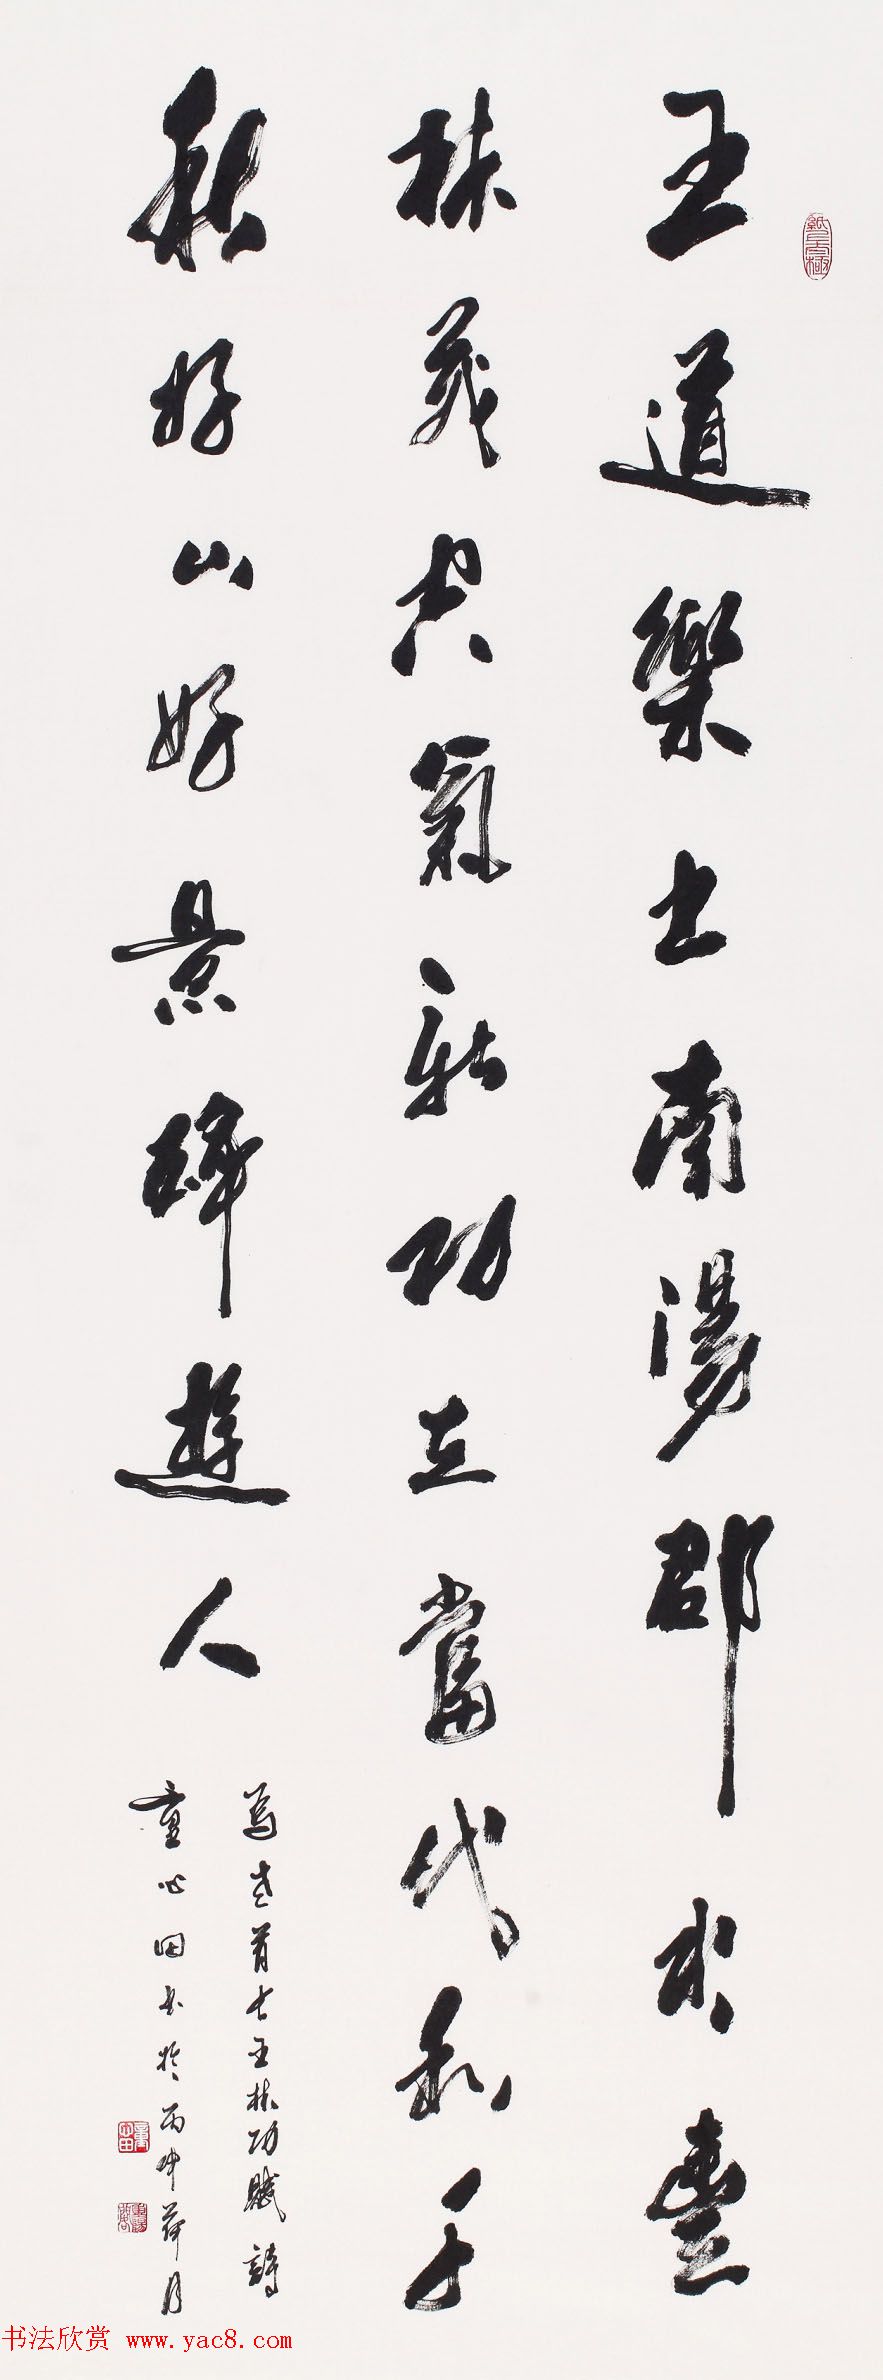 王道樂土南陽郡水豐
林茂空氣新功立當代利千
秋好山好景等遊人
為老首長王林功賦詩
童心田書於丙申荷月
书法欣赏 www.yac8.com